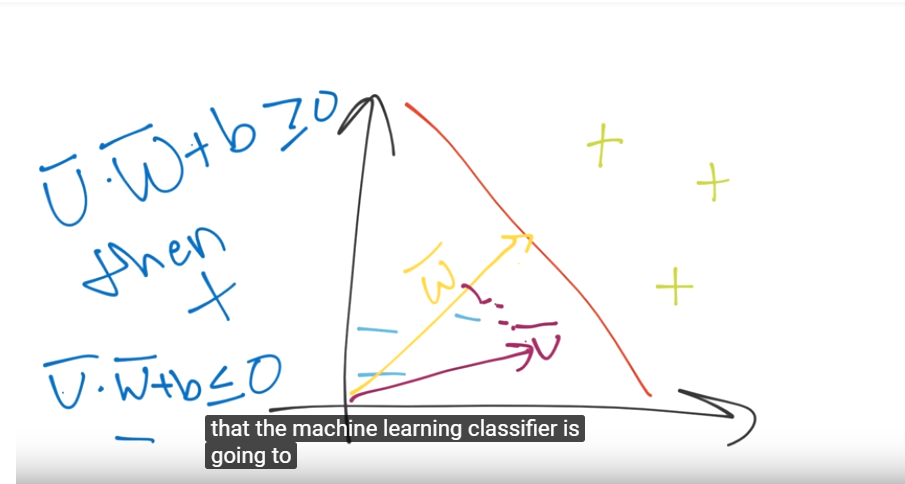 Ū·W̄+b≥0
then
+
Ū·W̄+b≤0
−
W̄
Ū
+
+
+
that the machine learning classifier is
going to